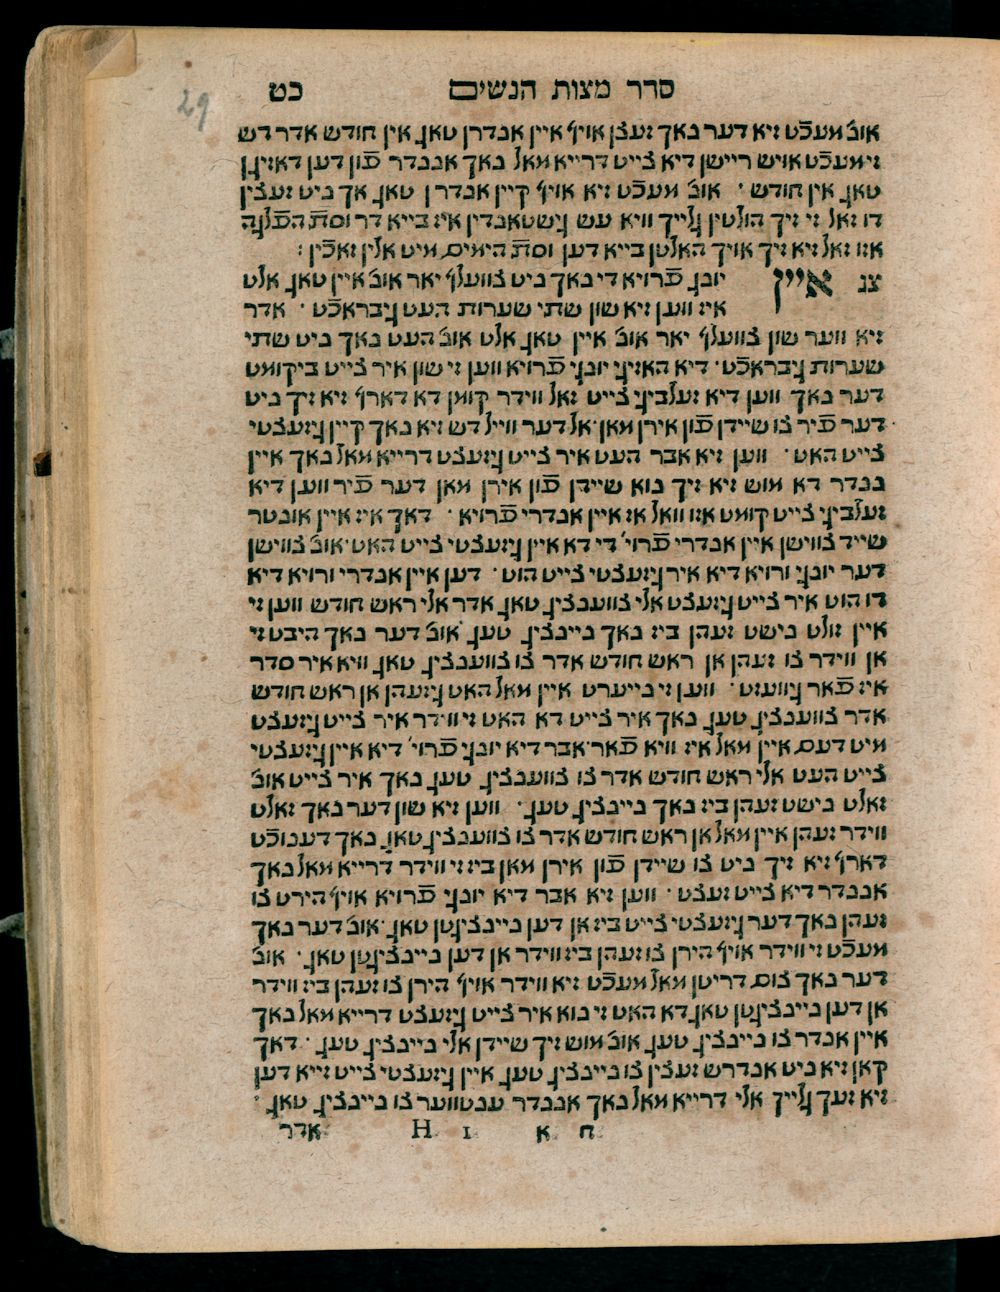 29
סדר מצות הנשים כט
אובֿ מעכֿט זיא דער נאך זעצן אויף איין אנדרן טאג, אין חודש אדר דש
זי מעכֿט אויש ריישן דיא צייט דרייא מאל נאך אננדר פֿון דען דאזיגן
טאג אין חודש ׳ אובֿ מעכֿט זיא אויף קיין אנדרן טאג אך ניט זעצין
דו זאל זי זיך הולטין גלייך וויא עש גישטאנדין איז בייא דר וסת הפלגה
אזו זאל זיא זיך אויך האלטן בייא דען וסת הימים מיט אלין זאכֿין :
צג איין יונג פֿרויא די נאך ניט צוועלף יאר אובֿ איין טאג אלט
איז ווען זיא שון שתי שערות העט גיבראכֿט ׳ אדר
זיא ווער שון צוועלף יאר אובֿ איין טאג אלט אובֿ העט נאך ניט שתי
שערות גיבראכֿט ׳ דיא האזיגי יונגי פֿרויא ווען זי שון איר צייט ביקומט
דער נאך ווען דיא זעלביגי צייט זאל ווידר קומן דא דארף זיא זיך ניט
דער פֿיר צו שיידן פֿון אירן מאן ׳ אל דער ווייל דש זיא נאך קיין גיזעצטי
צייט האט ׳ ווען זיא אבר העט איר צייט גיזעצט דרייא מאל נאך איין
ננדר דא מוש זיא זיך נוא שיידן פֿון אירן מאן דער פֿיר ווען דיא
זעלביגי צייט קומט אזו וואל אז איין אנדרי פֿרויא ׳ דאך איז איין אונטר
שייד צווישן איין אנדרי פֿרוי׳ די דא איין גיזעצטי צייט האט ׳ אובֿ צווישן
דער יונגי ורויא דיא איר גיזעצטי צייט הוט ׳ דען איין אנדרי ורויא דיא
דו הוט איר צייט גיזעצט אלי צוועכציג טאג אדר אלי ראש חודש ווען זי
איין זולט נישט זעהן ביז נאך ניינציג טעג אובֿ דער נאך היבט זי
אן ווידר צו זעהן אן ראש חודש אדר צו צוועכציג טאג וויא איר סדר
איז פֿאר גיוועזט ׳ ווען זי נייערט איין מאל האט גיזעהן אן ראש חודש
אדר צוועכציג טעג נאך איר צייט דא האט זי ווידר איר צייט גיזעצט
מיט דעם איין מאל איז וויא פֿאר ׳ אבר דיא יונגי פֿרוי׳ דיא איין גיזעצטי
צייט העט אלי ראש חודש אדר צו צוועכציג טעג נאך איר צייט אובֿ
זאלט נישט זעהן ביז נאך ניינציג טעג ׳ ווען זיא שון דער נאך זאלט
ווידר זעהן איין מאל אן ראש חודש אדר צו צוועכציג טאג נאך דענוכֿט
דארף זיא זיך ניט צו שיידן פֿון אירן מאן ביז זי ווידר דרייא מאל נאך
אננדר דיא צייט זעצט ׳ ווען זיא אבר דיא יונגי פֿרויא אויף הירט צו
זעהן נאך דער גיזעצטי צייט ביז אן דען ניינציגטן טאג ׳ אובֿ דער נאך
מעכֿט זי ווידר אויף הירן צו זעהן ביז ווידר אן דען ניינציגטן טאג ׳ אובֿ
דער נאך צום דריטן מאל מעכֿט זיא ווידר אויף הירן צו זעהן ביז ווידר
אן דען ניינציגטן טאג דא האט זי נוא איר צייט גיזעצט דרייא מאל נאך
איין אנדר צו ניינציג טעג אובֿ מוש זיך שיידן אלי ניינציג טעג ׳ דאך
קאן זיא ניט אנדרש זעצין צו ניינציג טעג איין גיזעצטי צייט זייא דען
זיא זעך גלייך אלי דרייא מאל נאך אננדר ענטווער צו ניינציג טאג :
ח א I H אדר